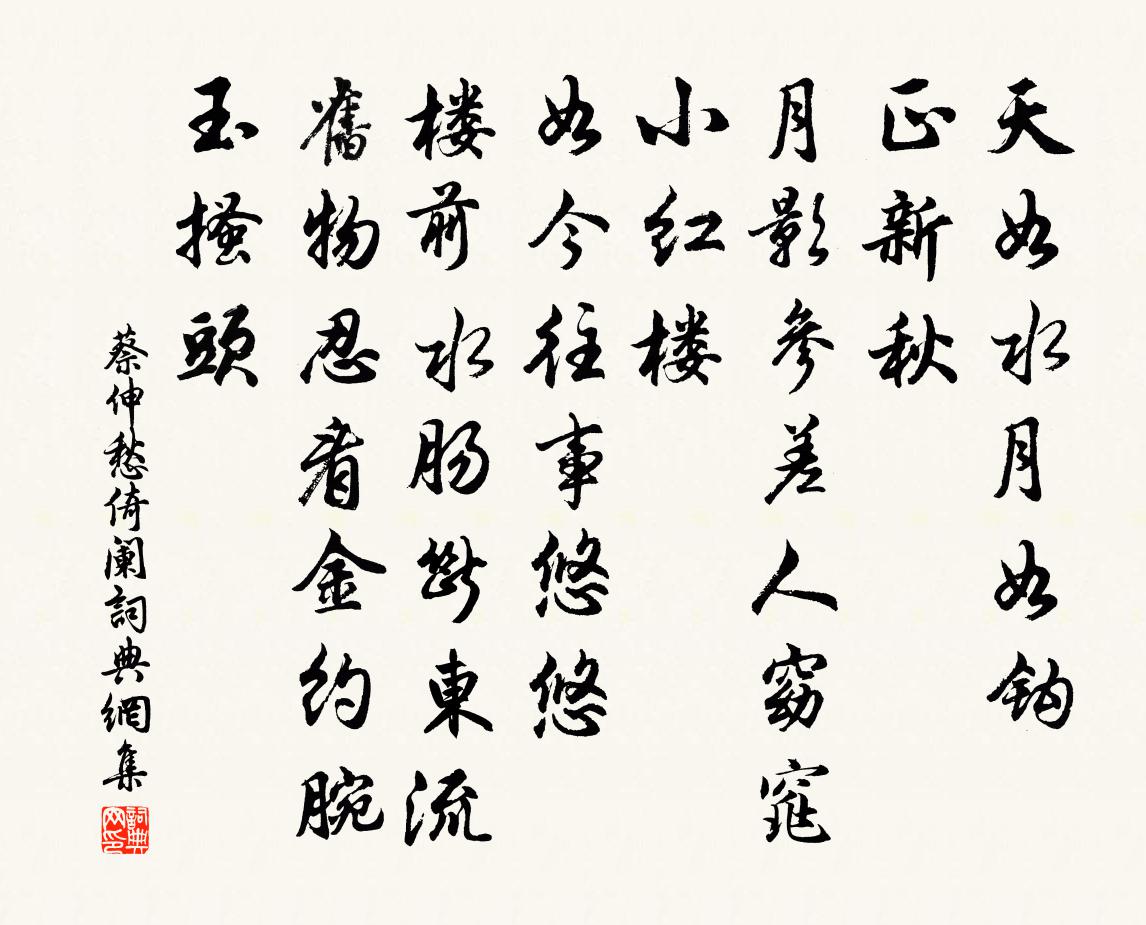 天如水月如钩
正新秋
月影参差人窈窕
小红楼
如今往事悠悠
楼前水肠断東流
舊物忍看金约腕
玉搔頭
蔡伸愁倚阑詞典網集
詞典網印